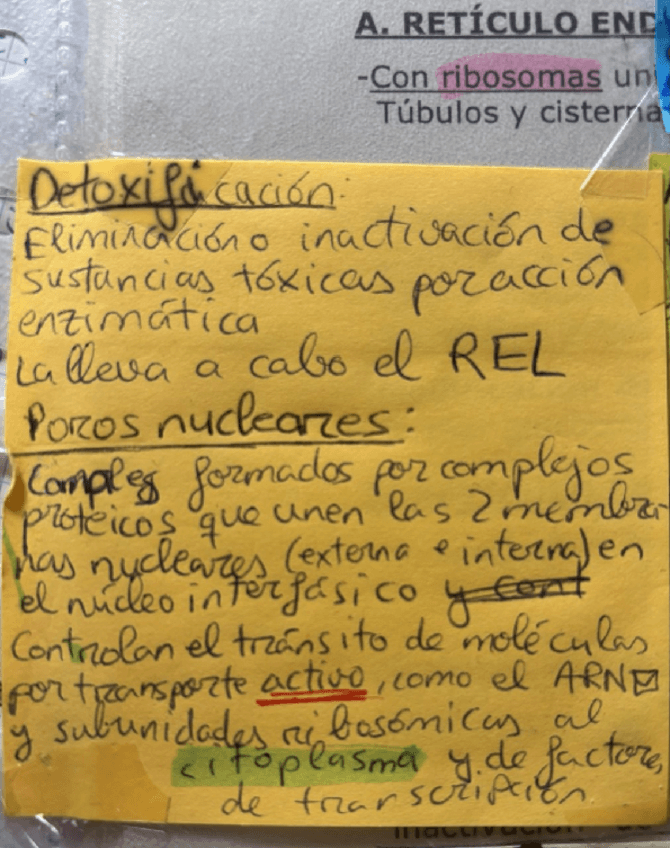 A. RETÍCULO END
-Con ribosomas un
Túbulos y cisterna
Detoxificación:
Eliminación o inactivación de
sustancias tóxicas por acción
enzimática
La lleva a cabo el REL
Poros nucleares:
formados por complejos
proteicos que unen las 2 membra
nas nucleares (externa e interna) en
el núcleo interfásico y cont
Controlan el tránsito de moléculas
por transporte activo, como el ARN
y subunidades ribosómicas al
citoplasma y de factores
de transcripción